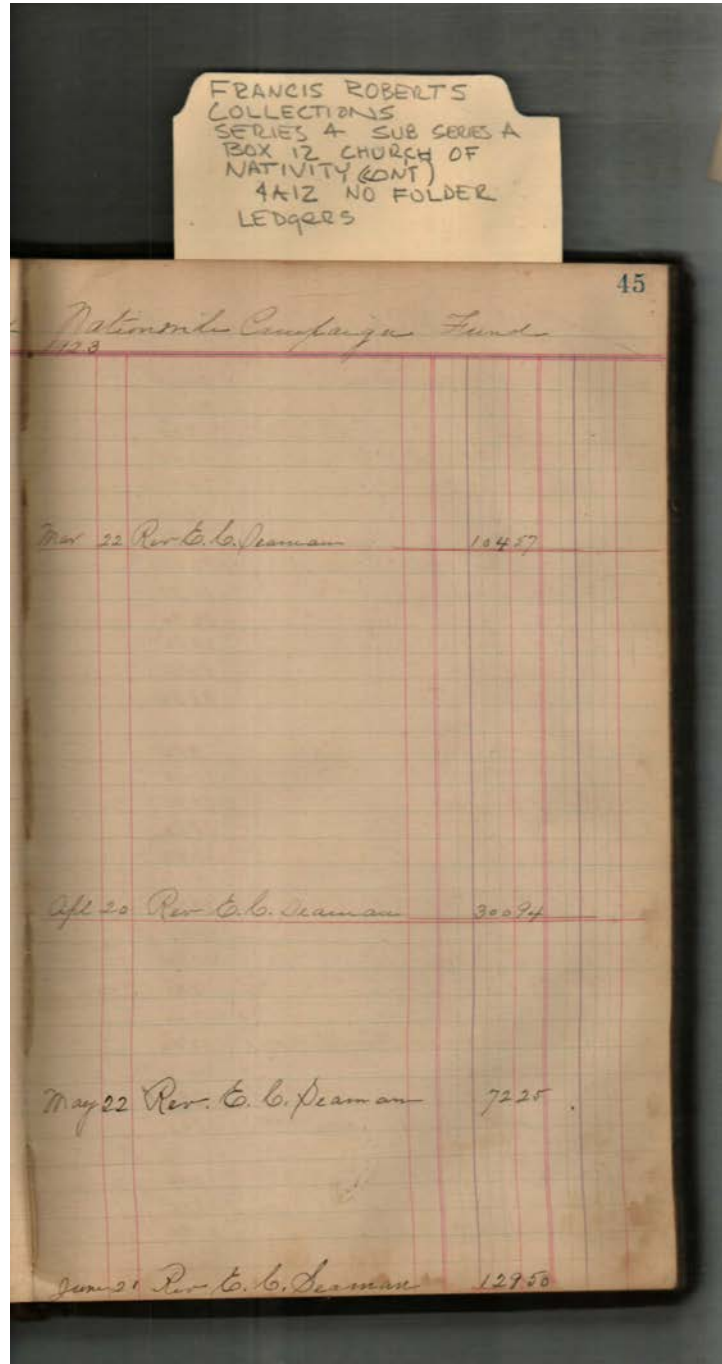 FRANCIS ROBERTS
COLLECTIONS
SERIES 4 SUB SERIES A
BOX 12 CHURCH OF
NATIVITY (CONT)
4A12 NO FOLDER
LEDgERS
45
Nationwide Campaign Fund
1923
Mar 22 Rev E. C. Seaman 104 57
Apl 20 Rev E. C. Seaman 300 94
May 22 Rev. E. C. Seaman 72 25
June 21 Rev E. C. Seaman 129 50